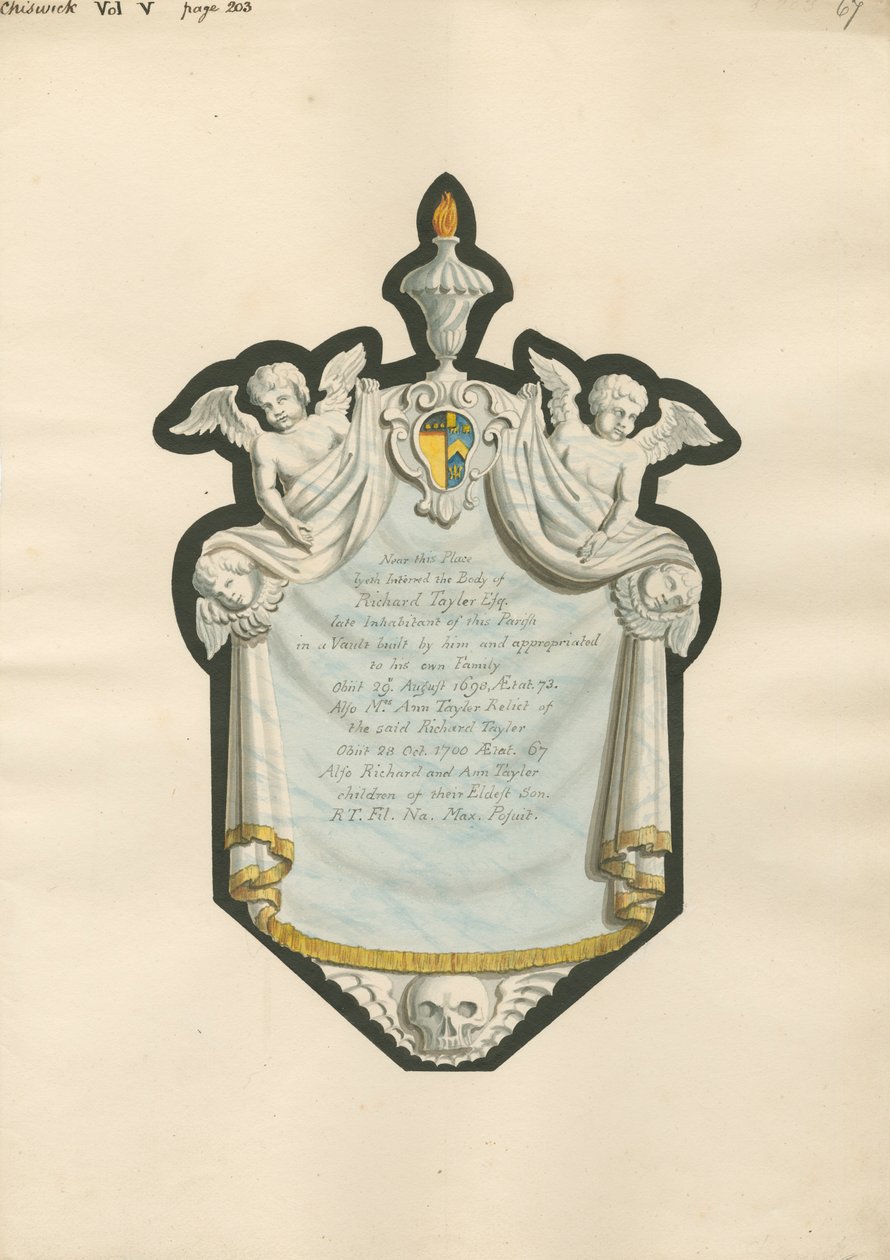 Chiswick Vol V page 203
67
Near this Place
lyeth Interred the Body of
Richard Tayler Eſq.
late Inhabitant of this Pariſh
in a Vault built by him and appropriated
to his own Family
Obiit 29. Auguſt 1698, Ætat. 73.
Alſo Mrs Ann Tayler Relict of
the said Richard Tayler
Obiit 28 Oct. 1700 Ætat. 67
Alſo Richard and Ann Tayler
children of their Eldeſt Son.
R T. Fil. Na. Max. Poſuit.